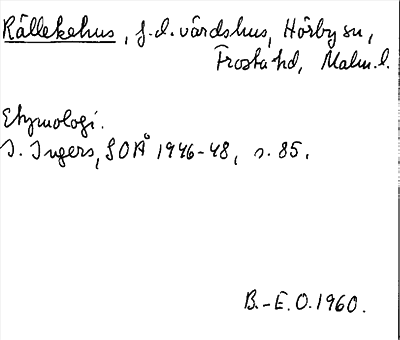 Rällekehus, f.d. värdshus, Hörby sn,
Frosta hd, Malm.l.
Etymologi.
I. Ingers, SOÅ 1946-48, s. 85.
B.-E.O. 1960.